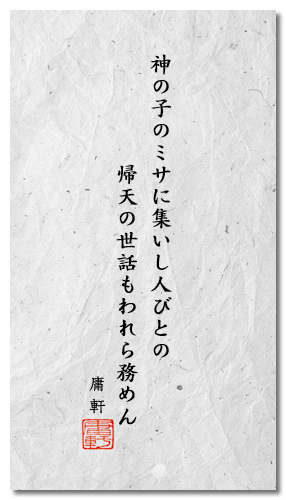 神の子のミサに集いし人びとの
帰天の世話もわれら務めん
庸軒